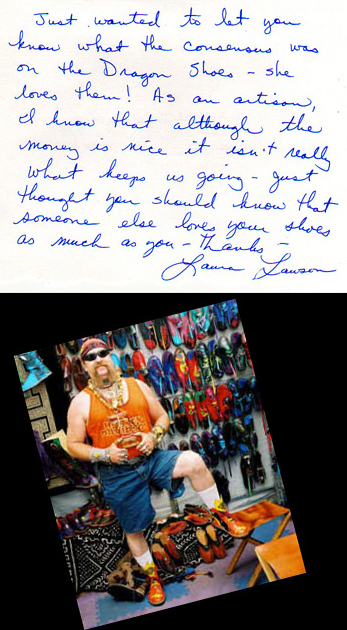 Just wanted to let you
know what the consensus was
on the Dragon Shoes - she
loves them! As an artisan,
I know that although the
money is nice it isn't really
what keeps us going - just
thought you should know that
someone else loves your shoes
as much as you - thanks -
Laura Lawson